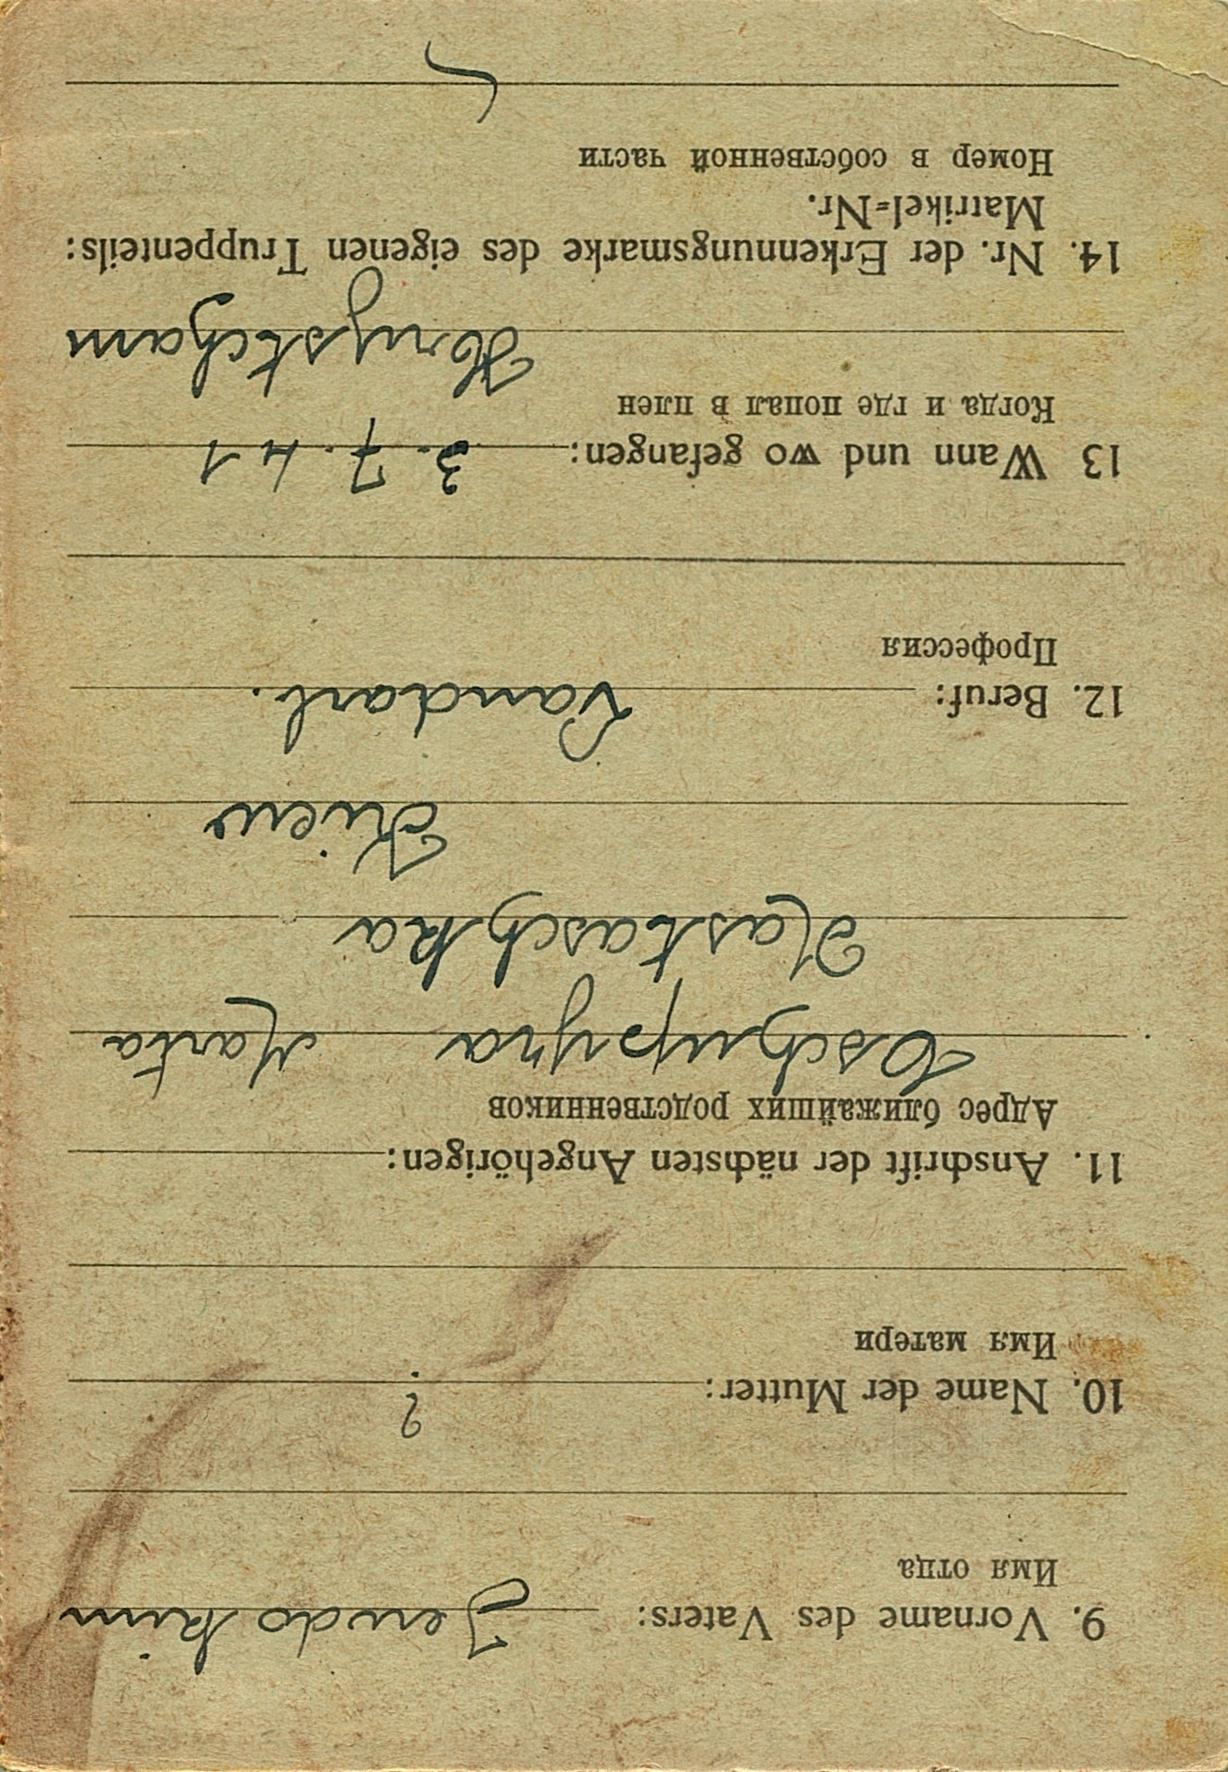 9. Vorname des Vaters: Jewdokim
Имя отца
10. Name der Mutter: ?
Имя матери
11. Anschrift der nächsten Angehörigen:
Адрес ближайших родственников
Marta
Nastaschka
Kiew
12. Beruf: Landarb.
Профессия
13 Wann und wo gefangen: 3.7.41
Когда и где попал в плен
14. Nr. der Erkennungsmarke des eigenen Truppenteils:
Matrikel=Nr.
Номер в собственной части